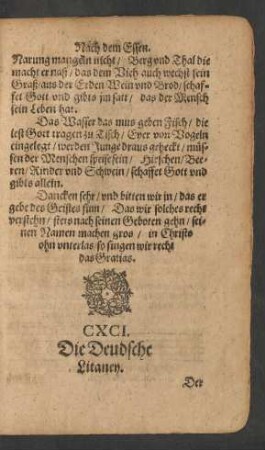 Nach dem Essen.
Narung mangeln nicht / Berg vnd Thal die
macht er naß / das dem Vieh auch wechst sein
Graß / aus der Erden Wein vnd Brod / schaf-
fet Gott vnd gibts jm satt / das der Mensch
sein Leben hat.
Das Wasser das mus geben Fisch / die
lest Gott tragen zu Tisch / Eyer von Vogeln
eingelegt / werden Junge draus geheckt / müs-
sen der Menschen speise sein / Hirschen / Bee-
ren / Rinder vnd Schwein / schaffet Gott vnd
gibts allein.
Dancken sehr / vnd bitten wir jn / das er
gebe des Geistes sinn / Das wir solches recht
verstehn / stets nach seinen Geboten gehn / sei-
nen Namen machen gros / in Christo
ohn vnterlas so singen wir recht
das Gratias.
CXCI.
Die Deudsche
Litaney.
Der